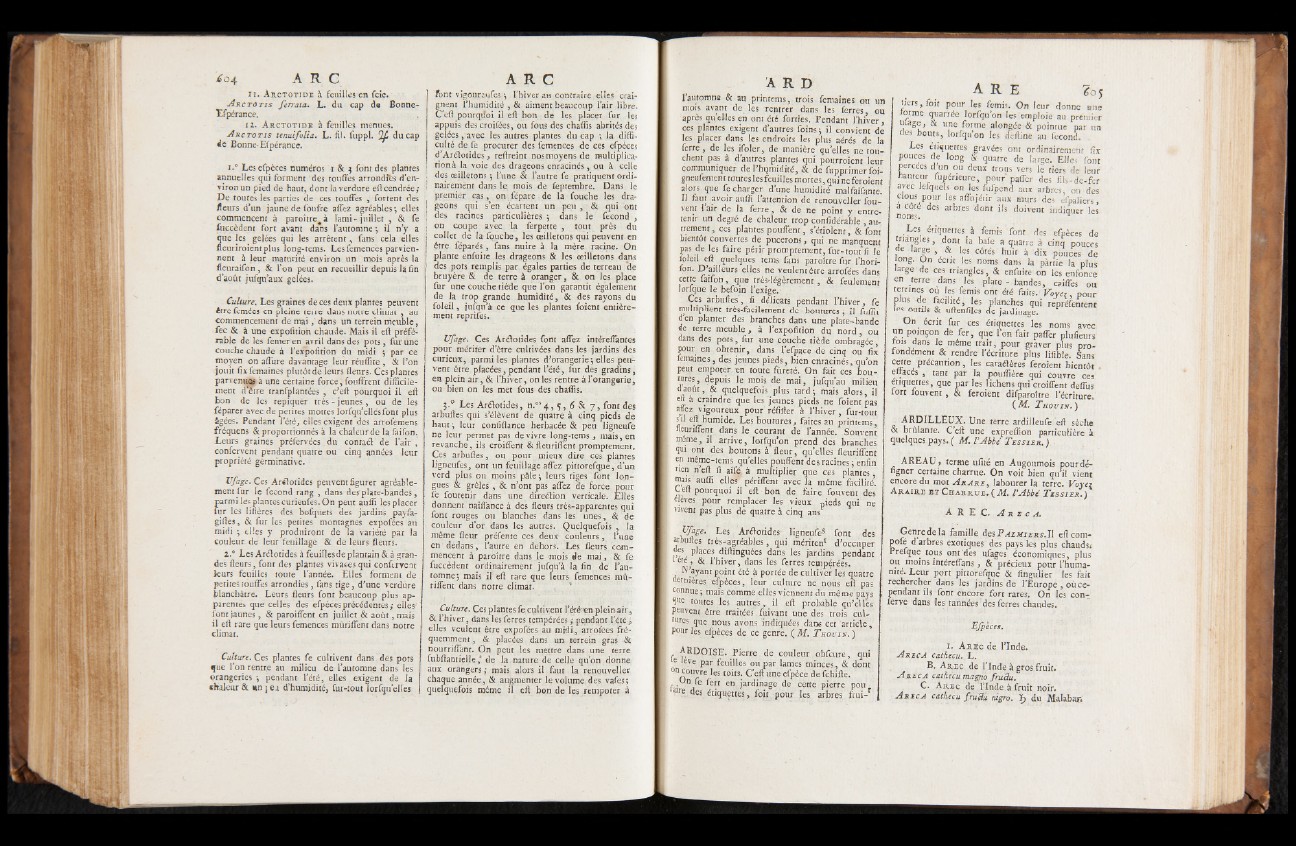 604 A R C
11. ARCTOTIDE à feuilles en scie.
ARCTOTIS serrata. L. du cap de Bonne-
Espérance.
12. ARCTOTIDE à feuilles menues.
ARCTOTIS tenuifolia. L. fil. suppl. ♃ du cap
de Bonne-Espérance.
1.° Les espèces numéros 1 & 3 sont des plantes
annuelles qui forment des touffes arrondies d'en-
viron un pied de haut, dont la verdure est cendrée;
De toutes les parties de ces touffes, sortent des
fleurs d'un jaune de soufre assez agréables; elles
commencent à paroître à la mi-juillet, & se
succèdent fort avant dans l'automne; il n'y a
que les gelées qui les arrêtent, sans cela elles
fleuriroient plus long-tems. Les semences parvien-
nent à leur maturité environ un mois après la
fleuraison, & l'on peut en recueillir depuis la fin
d'août jusqu'aux gelées.
Culture. Les graines de ces deux plantes peuvent
être semées en pleine terre dans notre climat, au
commencement de mai, dans un terrein meuble,
sec & à une exposition chaude. Mais il est préfé-
rable de les semer en avril dans des pots, sur une
couche chaude à l'exposition du midi; par ce
moyen on assure davantage leur réussite, & l'on
jouit six semaines plutôt de leurs fleurs. Ces plantes
parvenues à une certaine force, souffrent difficile-
ment d'être transplantées, c'est pourquoi il est
bon de les repiquer très-jeunes, ou de les
séparer avec de petites mottes lorsqu'elles sont plus
âgées. Pendant l'été, elles exigent des arrosemens
fréquens & proportionnés à la chaleur de la saison.
Leurs graines préservées du contact de l'air,
conservent pendant quatre ou cinq années leur
propriété germinative.
Usage. Ces Arctotides peuvent figurer agréable-
ment sur le second rang, dans des plate-bandes,
parmi les plantes curieuses. On peut aussi les placer
sur les lisières des bosquets des jardins paysa-
gistes, & sur les petites montagnes exposées au
midi; elles y produiront de la variété par la
couleur de leur feuillage & de leurs fleurs.
2.° Les Arctotides à feuilles de plantain & à gran-
des fleurs, sont des plantes vivaces qui conservent
leurs feuilles toute l'année. Elles forment de
petites touffes arrondies, sans tige, d'une verdure
blanchâtre. Leurs fleurs sont beaucoup plus ap-
parentes que celles des espèces précédentes; elles
sont jaunes, & paroissent en juillet & août, mais
il est rare que leurs semences mûrissent dans notre
climat.
Culture. Ces plantes se cultivent dans des pots
que l'on rentre au milieu de l'automne dans les
orangeries; pendant l'été, elles exigent de la
chaleur & un peu d'humidité, sur-tout lorsqu'elles
A R C
sont vigoureuses; l'hiver au contraire elles crai-
gnent l'humidité, & aiment beaucoup l'air libre.
C'est pourquoi il est bon de les placer sur les
appuis des croisées, ou sous des chassis abrités des
gelées, avec les autres plantes du cap; la diffi-
culté de se procurer des semences de ces espèces
d'Arctotides, restreint nos moyens de multiplica-
tion à la voie des drageons enracinés, ou à celle
des œilletons; l'une & l'autre se pratiquent ordi-
nairement dans le mois de septembre. Dans le
premier cas, on sépare de la souche les dra-
geons qui s'en écartent un peu, & qui ont
des racines particulières; dans le second,
on coupe avec la serpette, tout près du
collet de la souche, les œilletons qui peuvent en
être séparés, sans nuire à la mère racine. On
plante ensuite les drageons & les œilletons dans
des pots remplis par égales parties de terreau de
bruyère & de terre à oranger, & on les place
sur une couche tiède que l'on garantit également
de la trop grande humidité, & des rayons du
soleil, jusqu'à ce que les plantes soient entière-
ment reprises.
Usage. Ces Arctotides sont assez intéressantes
pour mériter d'être cultivées dans les jardins des
curieux, parmi les plantes d'orangerie; elles peu-
vent être placées, pendant l'été, sur des gradins,
en plein air, & l'hiver, on les rentre à l'orangerie,
ou bien on les met sous des chassis.
3.° Les Arctotides, n.os 4, 5, 6 & 7, sont des
arbustes qui s'élèvent de quatre à cinq pieds de
haut, leur consistance herbacée & peu ligneuse
ne leur permet pas de vivre long-tems, mais, en
revanche, ils croissent & fleurissent promptement.
Ces arbustes, ou pour mieux dire ces plantes
ligneuses, ont un feuillage assez pittoresque, d'un
verd plus ou moins pâle; leurs tiges sont lon-
gues & grêles, & n'ont pas assez de force pour
se soutenir dans une direction verticale. Elles
donnent naissance à des fleurs très-apparentes qui
sont rouges ou blanches dans les unes, & de
couleur d'or dans les autres. Quelquefois, la
même fleur présente ces deux couleurs, l'une
en dedans, l'autre en dehors. Les fleurs com-
mencent à paroître dans le mois de mai, & se
succèdent ordinairement jusqu'à la fin de l'au-
tomne; mais il est rare que leurs semences mû-
rissent dans notre climat.
Culture. Ces plantes se cultivent l'été en plein air,
& l'hiver, dans les serres tempérées; pendant l'été,
elles veulent être exposées au midi, arrosées fré-
quemment, & placées dans un terrein gras &
nourrissant. On peut les mettre dans une terre
substantielle, de la nature de celle qu'on donne
aux orangers; mais alors il faut la renouveller
chaque année, & augmenter le volume des vases;
quelquefois même il est bon de les rempoter à
A R D
l'automne & au printems, trois semaines ou un
mois avant de les rentrer dans les serres, ou
après qu'elles en ont été sorties. Pendant l'hiver,
ces plantes exigent d'autres soins; il convient de
les placer dans les endroits les plus aérés de la
serre, de les isoler, de manière qu'elles ne tou-
chent pas à d'autres plantes qui pourroient leur
communiquer de l'humidité, & de supprimer soi-
gneusement toutes les feuilles mortes, qui ne feroient
alors que se charger d'une humidité malfaisante.
Il faut avoir aussi l'attention de renouveller sou-
vent l'air de la serre, & de ne point y entre-
tenir un degré de chaleur trop considérable, au-
trement, ces plantes poussent, s'étiolent, & sont
bientôt couvertes de pucerons, qui ne manquent
pas de les faire périr promptement, sur-tout si le
soleil est quelques tems sans paroître sur l'hori-
son. D'ailleurs elles ne veulent être arrosées dans
cette saison, que très-légèrement, & seulement
lorsque le besoin l'exige.
Ces arbustes, si délicats pendant l'hiver, se
multiplient très-facilement de boutures, il suffit
d'en planter des branches dans une plate-bande
de terre meuble, à l'exposition du nord, ou
dans des pots, sur une couche tiède ombragée,
pour en obtenir, dans l'espace de cinq ou six
semaines, des jeunes pieds, bien enracinés, qu'on
peut empoter en toute sûreté. On fait ces bou-
tures, depuis le mois de mai, jusqu'au milieu
d'août, & quelquefois plus tard; mais alors, il
est à craindre que les jeunes pieds ne soient pas
assez vigoureux pour résister à l'hiver, sur-tout
s'il est humide. Les boutures, faites au printems,
fleurissent dans le courant de l'année. Souvent
même, il arrive, lorsqu'on prend des branches
qui ont des boutons à fleur, qu'elles fleurissent
en même-tems qu'elles poussent des racines; enfin
rien n'est si aisé à multiplier que ces plantes,
mais aussi elles périssent avec la même facilité.
C'est pourquoi il est bon de faire souvent des
élèves pour remplacer les vieux pieds qui ne
vivent pas plus de quatre à cinq ans.
Usage. Les Arctotides ligneuses sont des
arbustes très-agréables, qui méritent d'occuper
des places distinguées dans les jardins pendant
l'été, & l'hiver, dans les serres tempérées.
N'ayant point été à portée de cultiver les quatre
dernières espèces, leur culture ne nous est pas
connue; mais comme elles viennent du même pays
que toutes les autres, il est probable qu'elles
peuvent être traitées suivant une des trois cul-
tures que nous avons indiquées dans cet article,
pour les espèces de ce genre. (M. THOUIN.)
ARDOISE. Pierre de couleur obscure, qui
se lève par feuilles ou par lames minces, & dont
on couvre les toits. C'est une espèce de schiste.
On se sert en jardinage de cette pierre pour
faire des étiquettes, soit pour les arbres frui-
A R E 605
tiers, soit pour les semis. On leur donne une
forme quarrée lorsqu'on les emploie au premier
usage, & une forme alongée & pointue par un
des bouts, lorsqu'on les destine au second.
Les étiquettes gravées ont ordinairement six
pouces de long & quatre de large. Elles sont
percées d'un ou deux trous vers le tiers de leur
hauteur supérieure, pour passer des fils-de-fer
avec lesquels on les suspend aux arbres, ou des
clous pour les assujétir aux murs des espaliers,
à côté des arbres dont ils doivent indiquer les
noms.
Les étiquettes à semis sont des espèces de
triangles, dont la base a quatre à cinq pouces
de large, & les côtés huit à dix pouces de
long. On écrit les noms dans la partie la plus
large de ces triangles, & ensuite on les enfonce
en terre dans les plate-bandes, caisses ou
terrines où les semis ont été faits. Voyez, pour
plus de facilité, les planches qui représentent
les outils & ustensiles de jardinage.
On écrit sur ces étiquettes les noms avec
un poinçon de fer, que l'on fait passer plusieurs
fois dans le même trait, pour graver plus pro-
fondément & rendre l'écriture plus lisible. Sans
cette précaution, les caractères seroient bientôt
effacés, tant par la poussière qui couvre ces
étiquettes, que par les lichens qui croissent dessus
fort souvent, & feroient disparoître l'écriture.
(M. THOUIN.)
ARDILLEUX. Une terre ardilleuse est sèche
& brûlante. C'est une expression particulière à
quelques pays. (M. l'Abbé TESSIER.)
AREAU, terme usité en Angoumois pour dé-
signer certaine charrue. On voit bien qu'il vient
encore du mot ARARE, labourer la terre. Voyez
ARAIRE ET CHARRUE. (M. l'Abbé TESSIER.)
A R E C. ARECA.
Genre de la famille des PALMIERS. Il est com-
posé d'arbres exotiques des pays les plus chauds.
Presque tous ont des usages économiques, plus
ou moins intéressans, & précieux pour l'huma-
nité. Leur port pittoresque & singulier les fait
rechercher dans les jardins de l'Europe, où ce-
pendant ils sont encore fort rares. On les con-
serve dans les tannées des serres chaudes.
Espèces.
1. AREC de l'Inde.
ARECA cathecu. L.
B. AREC de l'Inde à gros fruit.
ARECA cathecu magno fructu.
C. AREC de l'Inde à fruit noir.
ARECA cathecu fructu nigro. ♄ du Malabar.